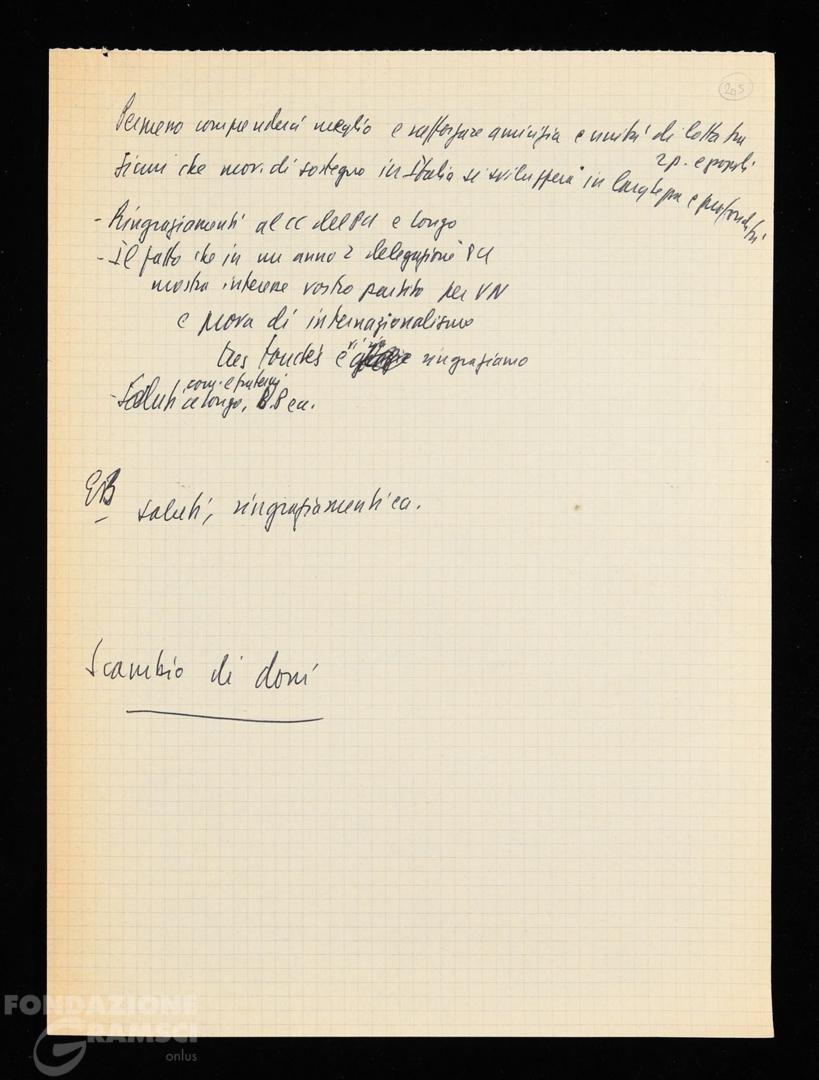 205
Permetto comprenderci meglio e rafforzare amicizia e unità di lotta tra
2 p. e popoli
Sicuri che mov. di sostegno in Italia si svilupperà in larghezza e profondità
- Ringraziamenti al CC del PCI e Longo
- Il fatto che in un anno 2 delegazioni PCI
mostra interesse vostro partito per VN
e prova di internazionalismo
très touchés e vi ringraziamo
- Saluti com. e fraterni a Longo, ecc.
EB
saluti, ringraziamenti ecc.
Scambio di doni
FONDAZIONE
GRAMSCI
onlus